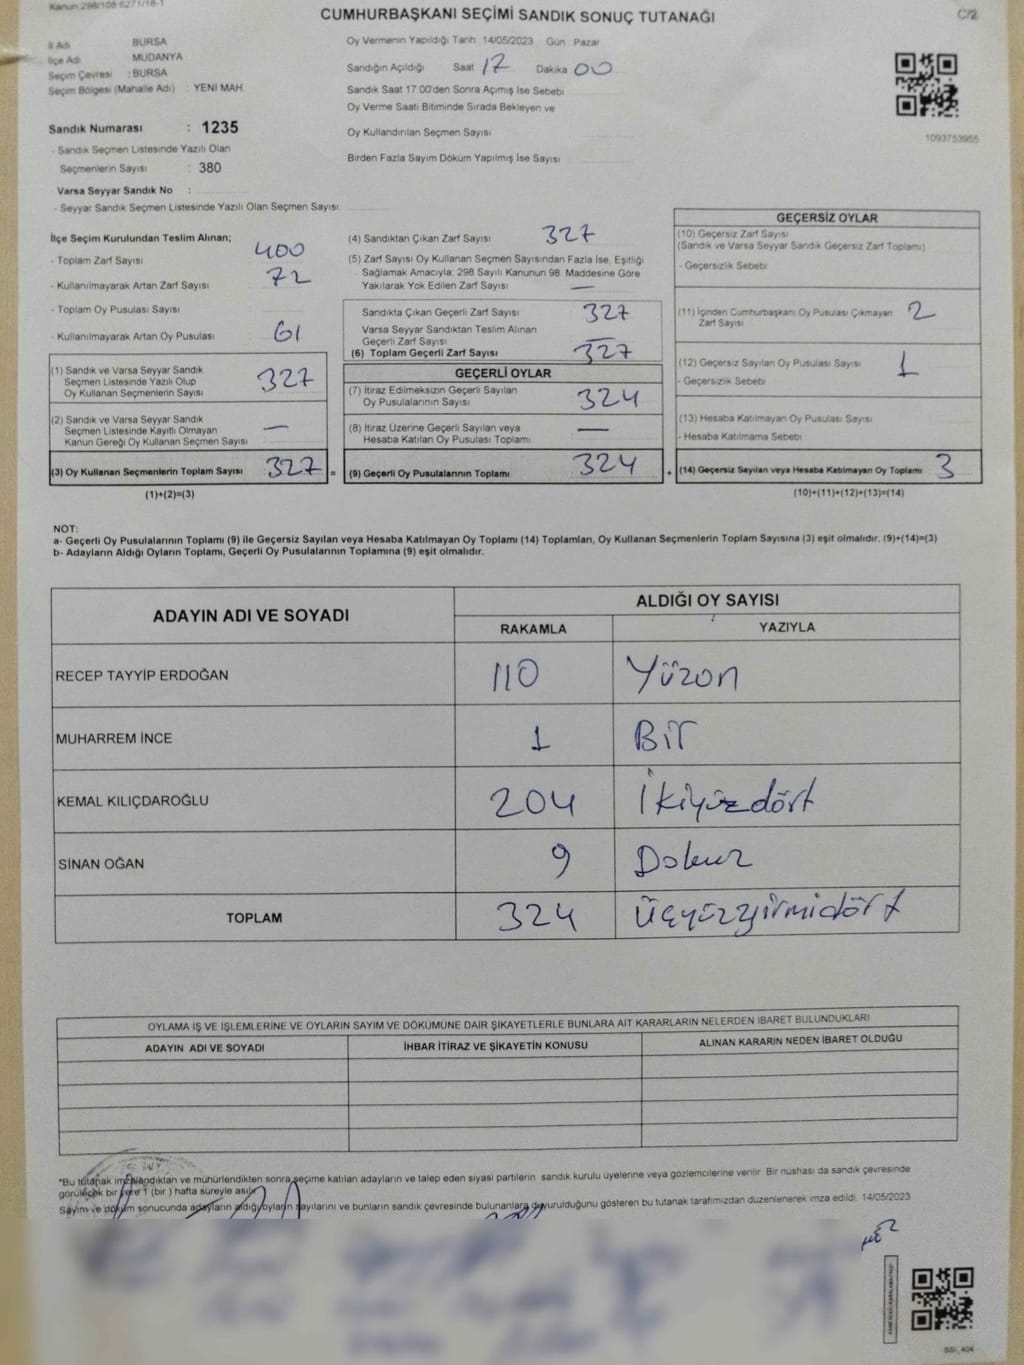 Kanun:298/105-6271/18-1
CUMHURBAŞKANI SEÇİMİ SANDIK SONUÇ TUTANAĞI
C/2
İl Adı BURSA
İlçe Adı MUDANYA
Seçim Çevresi : BURSA
Seçim Bölgesi (Mahalle Adı) : YENİ MAH.
Sandık Numarası : 1235
- Sandık Seçmen Listesinde Yazılı Olan
Seçmenlerin Sayısı : 380
Varsa Seyyar Sandık No :
- Seyyar Sandık Seçmen Listesinde Yazılı Olan Seçmen Sayısı:
Oy Vermenin Yapıldığı Tarih 14/05/2023 Gün : Pazar
Sandığın Açıldığı Saat 17 Dakika 00
Sandık Saat 17:00'den Sonra Açımış İse Sebebi
Oy Verme Saati Bitiminde Sırada Bekleyen ve
Oy Kullandırılan Seçmen Sayısı
Birden Fazla Sayım Döküm Yapılmış İse Sayısı
1093753955
İlçe Seçim Kurulundan Teslim Alınan;
- Toplam Zarf Sayısı 400
- Kullanılmayarak Artan Zarf Sayısı 72
- Toplam Oy Pusulası Sayısı
- Kullanılmayarak Artan Oy Pusulası 61
(1) Sandık ve Varsa Seyyar Sandık
Seçmen Listesinde Yazılı Olup
Oy Kullanan Seçmenlerin Sayısı 327
(2) Sandık ve Varsa Seyyar Sandık
Seçmen Listesinde Kayıtlı Olmayan
Kanun Gereği Oy Kullanan Seçmen Sayısı —
(3) Oy Kullanan Seçmenlerin Toplam Sayısı 327 =
(1)+(2)=(3)
(4) Sandıktan Çıkan Zarf Sayısı 327
(5) Zarf Sayısı Oy Kullanan Seçmen Sayısından Fazla İse, Eşitliği
Sağlamak Amacıyla; 298 Sayılı Kanunun 98. Maddesine Göre
Yakılarak Yok Edilen Zarf Sayısı —
Sandıkta Çıkan Geçerli Zarf Sayısı 327
Varsa Seyyar Sandıktan Teslim Alınan
Geçerli Zarf Sayısı —
(6) Toplam Geçerli Zarf Sayısı 327
GEÇERLİ OYLAR
(7) İtiraz Edilmeksizin Geçerli Sayılan
Oy Pusulalarının Sayısı 324
(8) İtiraz Üzerine Geçerli Sayılan veya
Hesaba Katılan Oy Pusulası Toplamı —
(9) Geçerli Oy Pusulalarının Toplamı 324 +
GEÇERSİZ OYLAR
(10) Geçersiz Zarf Sayısı
(Sandık ve Varsa Seyyar Sandık Geçersiz Zarf Toplamı)
- Geçersizlik Sebebi
(11) İçinden Cumhurbaşkanı Oy Pusulası Çıkmayan
Zarf Sayısı 2
(12) Geçersiz Sayılan Oy Pusulası Sayısı 1
- Geçersizlik Sebebi
(13) Hesaba Katılmayan Oy Pusulası Sayısı
- Hesaba Katılmama Sebebi
(14) Geçersiz Sayılan veya Hesaba Katılmayan Oy Toplamı 3
(10)+(11)+(12)+(13)=(14)
NOT:
a- Geçerli Oy Pusulalarının Toplamı (9) ile Geçersiz Sayılan veya Hesaba Katılmayan Oy Toplamı (14) Toplamları, Oy Kullanan Seçmenlerin Toplam Sayısına (3) eşit olmalıdır. (9)+(14)=(3)
b- Adayların Aldığı Oyların Toplamı, Geçerli Oy Pusulalarının Toplamına (9) eşit olmalıdır.
ADAYIN ADI VE SOYADI
ALDIĞI OY SAYISI
RAKAMLA YAZIYLA
RECEP TAYYİP ERDOĞAN 110 Yüzon
MUHARREM İNCE 1 Bir
KEMAL KILIÇDAROĞLU 204 İkiyüzdört
SİNAN OĞAN 9 Dokuz
TOPLAM 324 Üçyüzyirmidört
OYLAMA İŞ VE İŞLEMLERİNE VE OYLARIN SAYIM VE DÖKÜMÜNE DAİR ŞİKAYETLERLE BUNLARA AİT KARARLARIN NELERDEN İBARET BULUNDUKLARI
ADAYIN ADI VE SOYADI
İHBAR İTİRAZ VE ŞİKAYETİN KONUSU
ALINAN KARARIN NEDEN İBARET OLDUĞU
*Bu tutanak imzalandıktan ve mühürlendikten sonra seçime katılan adayların ve talep eden siyasi partilerin sandık kurulu üyelerine veya gözlemcilerine verilir. Bir nüshası da sandık çevresinde
görülecek bir yere 1 (bir ) hafta süreyle asılır.
Sayım ve döküm sonucunda adayların aldığı oyların sayılarını ve bunların sandık çevresinde bulunanlara duyurulduğunu gösteren bu tutanak tarafımızdan düzenlenerek imza edildi. 14/05/2023